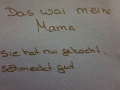 Das war meine
Mama
sie hat nur gekocht.
schmeckt gut